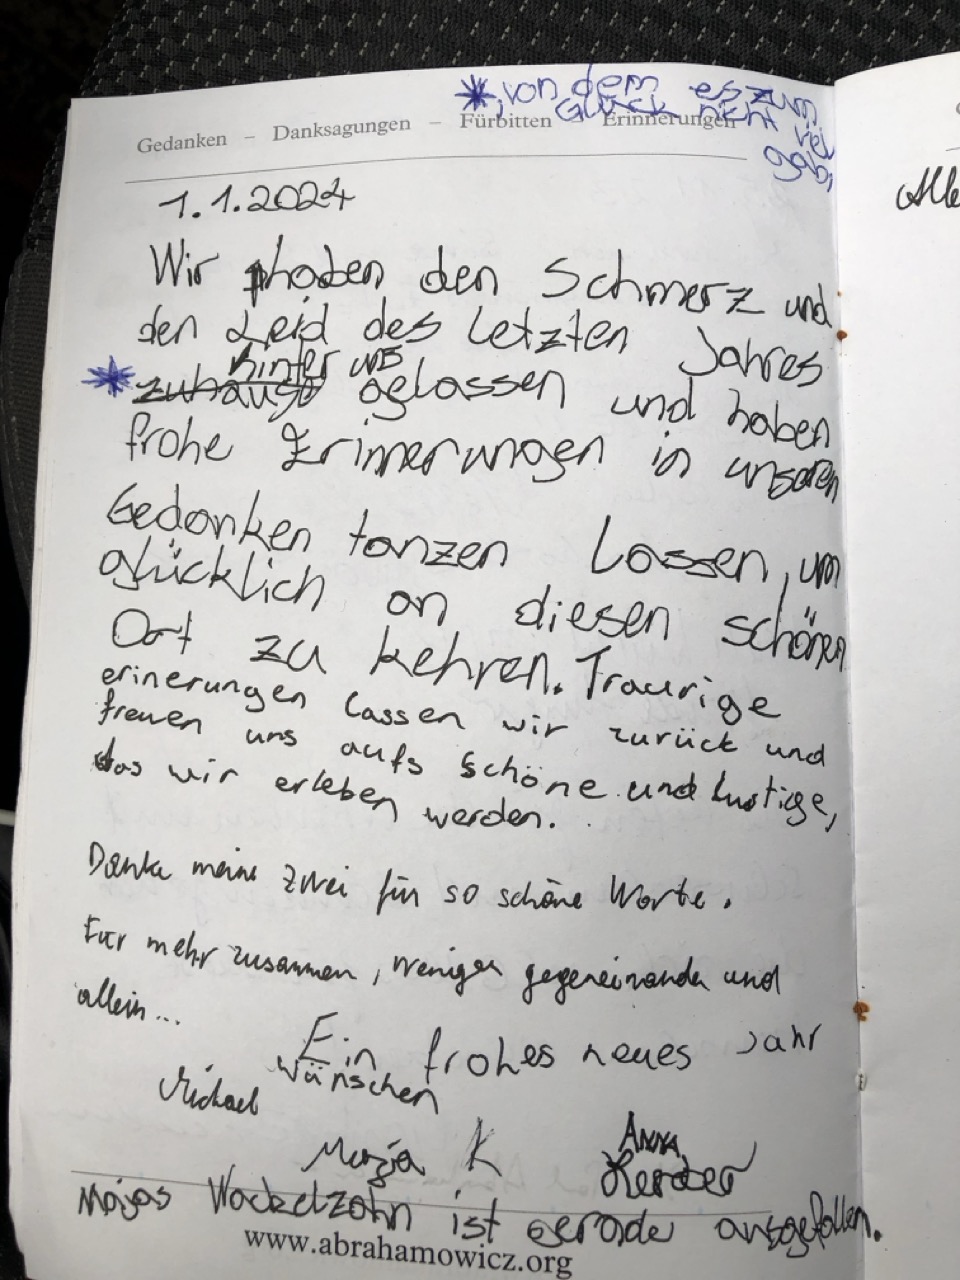 *, von dem es zum
Glück nicht viel
gab,
Gedanken – Danksagungen – Fürbitten – Erinnerungen
1.1.2024
Wir haben den Schmerz und
den Leid des letzten Jahres
* zuhause hinter uns gelassen und haben
frohe Erinnerungen in unseren
Gedanken tanzen lassen, um
glücklich an diesen schönen
Ort zu kehren. Traurige
erinerungen lassen wir zurück und
freuen uns aufs schöne und lustige,
das wir erleben werden.
Danke meine zwei für so schöne Worte.
Für mehr zusammen, weniger gegeneinander und
allein...
Ein frohes neues Jahr
wünschen
Michael
K ANNA
Mojas Wackelzahn ist gerade ausgefallen.
www.abrahamowicz.org
Alle